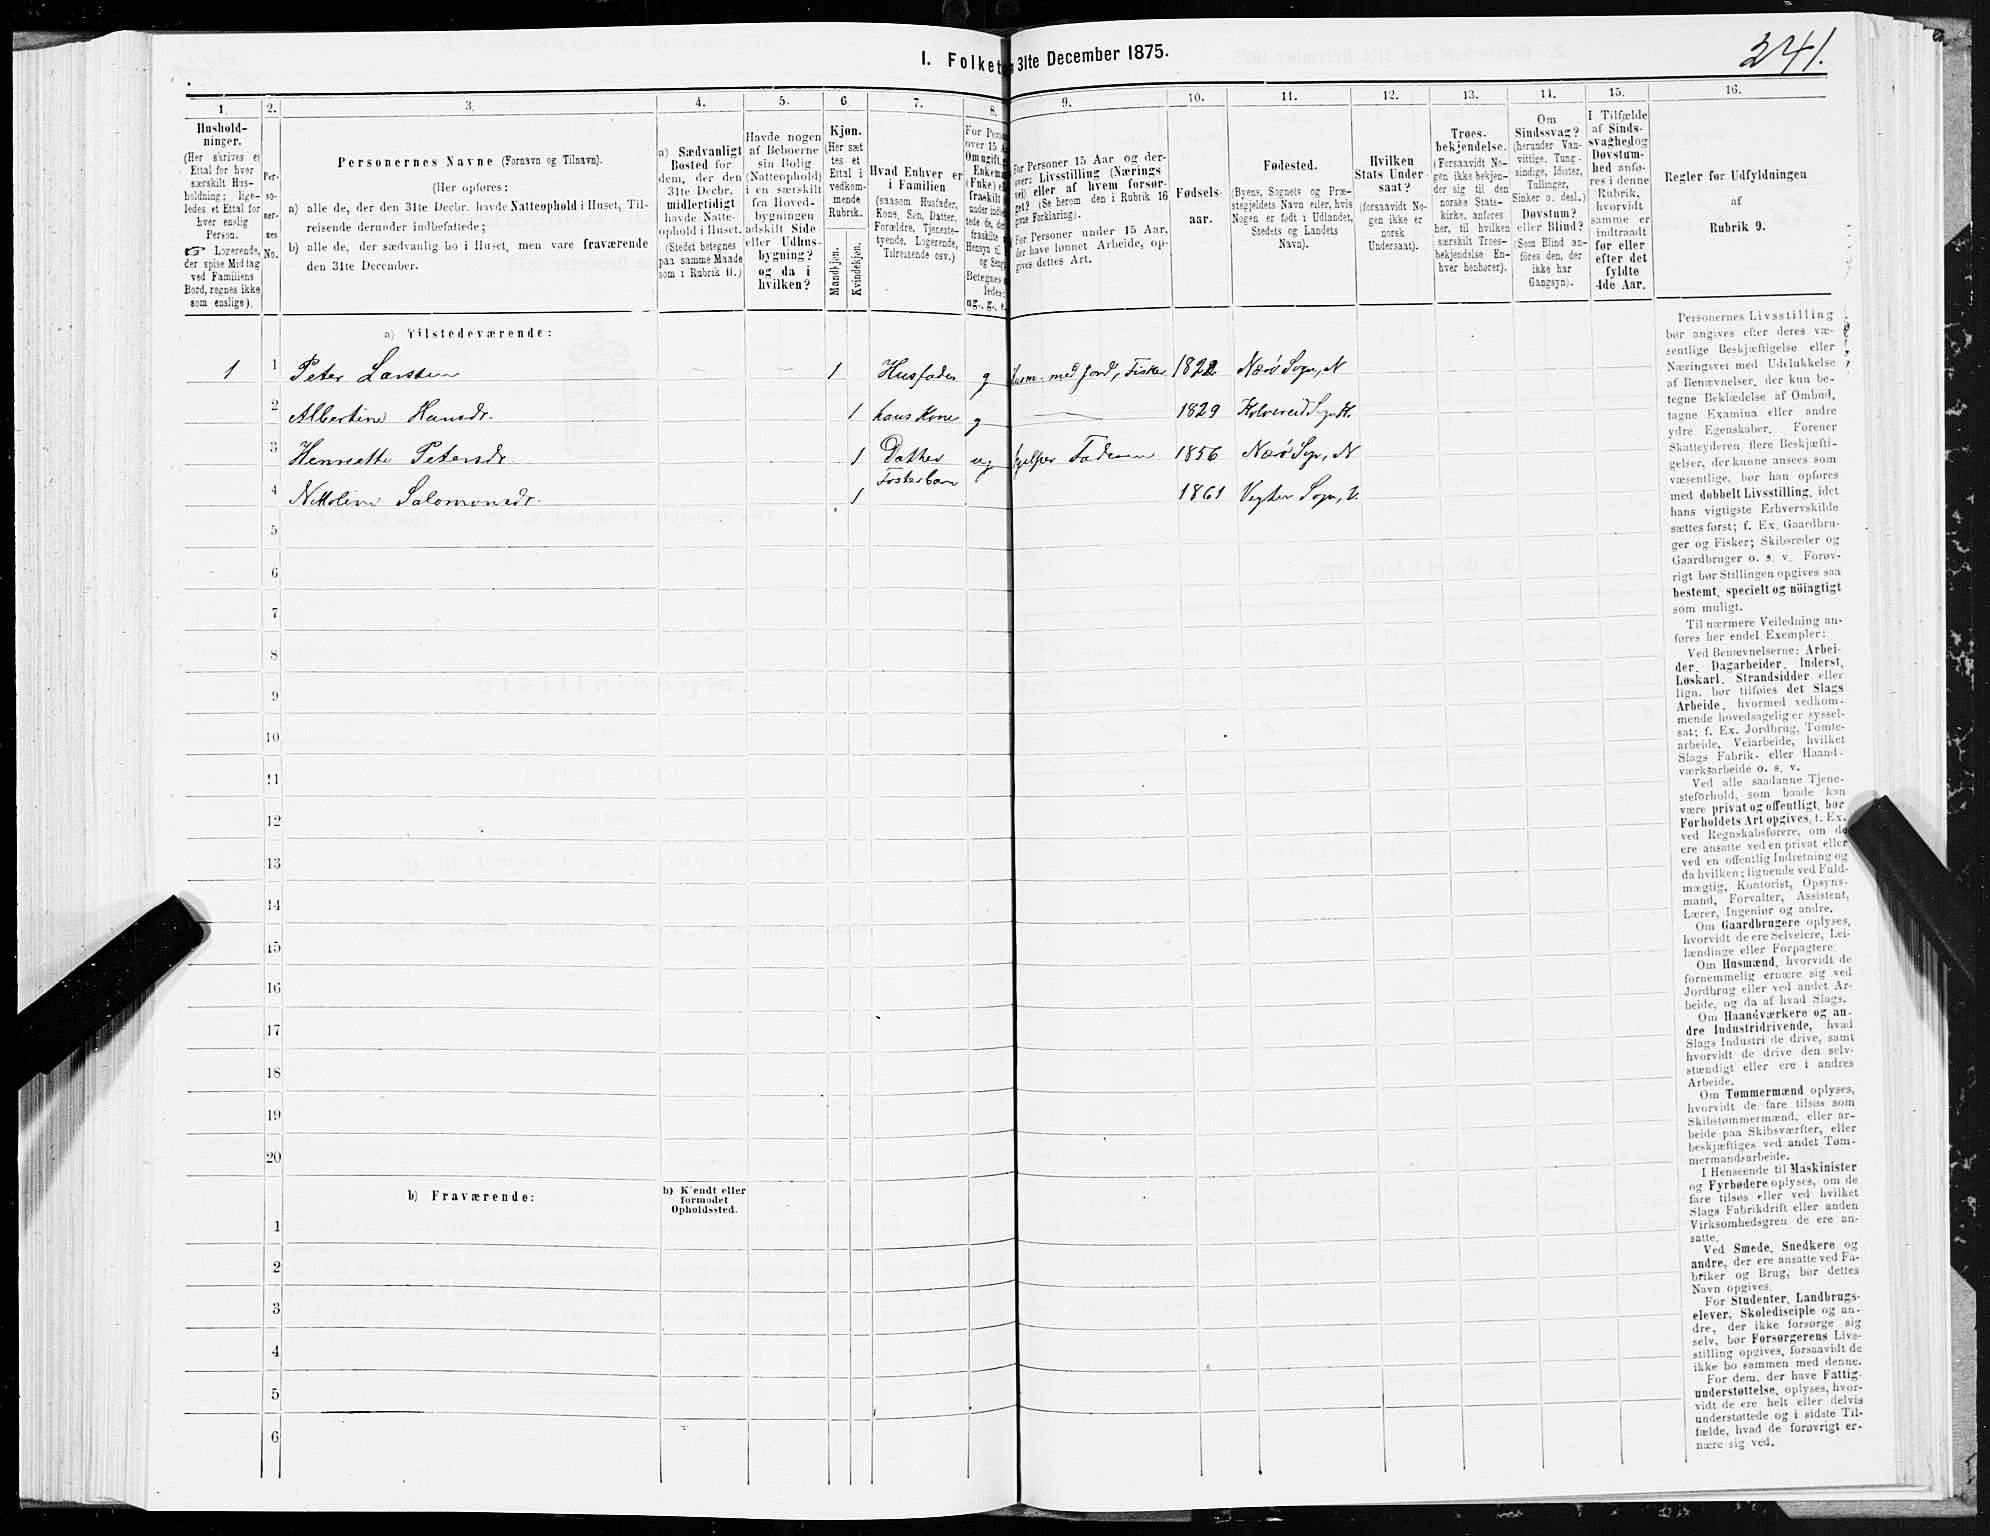 I. Folket
31te December 1875.
241.
1.
2.
3.
4.
5.
6.
7.
8.
9.
10.
11.
12.
13.
14.
15.
16.
Hushold-
ninger.
(Her skrives et
Ettal for hver
særskilt Hus-
holdning; lige-
ledes et Ettal for
hver enslig
Person.
☞ Logerende,
der spise Middag
ved Familiens
Bord, regnes ikke
som enslige).
Per-
so-
ner-
nes
No.
Personernes Navne (Fornavn og Tilnavn).
(Her opføres:
a) alle de, der den 31te Decbr. havde Natteophold i Huset, Til-
reisende derunder indbefattede;
b) alle de, der sædvanlig bo i Huset, men vare fraværende
den 31te December.
a) Sædvanligt
Bosted for
dem, der den
31te Decbr.
midlertidigt
havde Natte-
ophold i Huset.
(Stedet betegnes
paa samme Maade
som i Rubrik 11.)
Havde nogen
af Beboerne
sin Bolig
(Natteophold)
i en særskilt
fra Hoved-
bygningen
adskilt Side-
eller Udhus-
bygning?
og da i
hvilken?
Kjøn.
(Her sæt
tes et
Ettal i
vedkom-
mende
Rubrik.
Mandkjøn.
Kvindekjøn.
Hvad Enhver er
i Familien
(saasom Husfader,
Kone, Søn, Datter,
Forældre, Tjeneste-
tyende, Logerende,
Tilreisende osv.)
For Perso
over 15 A
Om ugift,
Enkema
(Enke) e
fraskilt
under indbe
tede de, d
fraskilte
Hensyn t
og Seng
Betegnes s
ledes:
ug., g., e.
For Personer 15 Aar og der-
over: Livsstilling (Nærings
vei) eller af hvem forsør-
get? (Se herom den i Rubrik 16
givne Forklaring).
For Personer under 15 Aar,
der have lønnet Arbeide, op-
gives dettes Art.
Fødsels-
aar.
Fødested.
(Byens, Sognets og Præ-
stegjeldets Navn eller, hvis
Nogen er født i Udlandet,
Stedets og Landets
Navn).
Hvilken
Stats Under-
saat?
(forsaavidt No-
gen ikke er
norsk
Undersaat).
Troes-
bekjendelse.
(Forsaavidt No-
gen ikke bekjen-
der sig til den
norske Stats-
kirke, anføres
her, til hvilken
særskilt Troes-
bekjendelse En-
hver henhører).
Om
Sindssvag?
(herunder Van-
vittige, Tung-
sindige, Idioter,
Tullinger,
Sinker o. desl.)
Døvstum?
eller Blind?
(Som Blind an-
føres den, der
ikke har
Gangsyn).
I Tilfælde
af Sinds-
svaghed og
Døvstum-
hed anfø-
res i denne
Rubrik,
hvorvidt
samme er
indtraadt
før eller
efter det
fyldte
4de Aar.
Regler for Udfyldningen
af
Rubrik 9.
a) Tilstedeværende:
1 1 Peter Larsen — — 1 Husfader g Husm. med Jord, Fisker 1822 Nærø Sogn, N
2 Albertine Hansdr. 1 hans Kone g — 1829 Kolvereid Sogn K.
3 Henriette Petersdr. 1 Datter ug hjelper Faderen 1856 Nærø Sogn, N
4 Nikoline Salomonsdr. 1 Fosterbarn 1861 Vegten Sogn, V.
5
6
7
8
9
10
11
12
13
14
15
16
17
18
19
20
b) Fraværende:
b) Kjendt eller
formodet
Opholdssted.
1
2
3
4
5
6
Personernes Livsstilling
bør angives efter deres væ-
sentlige Beskjæftigelse eller
Næringsvei med Udelukkelse
af Benævnelser, der kun be-
tegne Beklædelse af Ombud,
tagne Examina eller andre
ydre Egenskaber. Forener
Skatteyderen flere Beskjæfti-
gelser, der kunne ansees som
væsentlige, bør han opføres
med dobbelt Livsstilling, idet
hans vigtigste Erhvervskilde
sættes først; f. Ex. Gaardbru-
ger og Fisker; Skibsreder og
Gaardbruger o. s. v. Forøv-
rigt bør Stillingen opgives saa
bestemt, specielt og nöiagtigt
som muligt.
Til nærmere Veiledning an-
føres her endel Exempler:
Ved Benævnelserne: Arbei-
der, Dagarbeider, Inderst,
Løskarl, Strandsidder eller
lign. bør tilføies det Slags
Arbeide, hvormed vedkom-
mende hovedsagelig er syssel-
sat; f. Ex. Jordbrug, Tomte-
arbeide, Veiarbeide, hvilket
Slags Fabrik- eller Haand-
værksarbeide o. s. v.
Ved alle saadanne Tjene-
steforhold, som baade kan
være privat og offentligt, bør
Forholdets Art opgives, t. Ex.
ved Regnskabsførere, om de
ere ansatte ved en privat eller
ved en offentlig Indretning og
da hvilken; lignende ved Fuld-
mægtig, Kontorist, Opsyns-
mand, Forvalter, Assistent,
Lærer, Ingeniør og andre.
Om Gaardbrugere oplyses,
hvorvidt de ere Selveiere, Lei-
lændinge eller Forpagtere.
Om Husmænd, hvorvidt de
fornemmelig ernære sig ved
Jordbrug eller ved andet Ar-
beide, og da af hvad Slags.
Om Haandværkere og an-
dre Industridrivende, hvad
Slags Industri de drive, samt
hvorvidt de drive den selv-
stændigt eller ere i andres
Arbeide.
Om Tømmermænd oplyses,
hvorvidt de fare tilsøs som
Skibstømmermænd, eller ar-
beide paa Skibsværfter, eller
beskjæftiges ved andet Tøm-
mermandsarbeide.
I Henseende til Maskinister
og Fyrbødere oplyses, om de
fare tilsøs eller ved hvilket
Slags Fabrikdrift eller anden
Virksomhedsgren de ere an-
satte.
Ved Smede, Snedkere og
andre, der ere ansatte ved Fa-
briker og Brug, bør dettes
Navn opgives.
For Studenter, Landbrugs-
elever, Skoledisciple og an-
dre, der ikke forsørge sig
selv, bør Forsørgerens Livs-
stilling opgives, forsaavidt de
ikke bo sammen med denne.
For dem, der have Fattig-
understøttelse, oplyses, hvor-
vidt de ere helt eller delvis
understøttede og i sidste Til-
fælde, hvad de forøvrigt er-
nære sig ved.